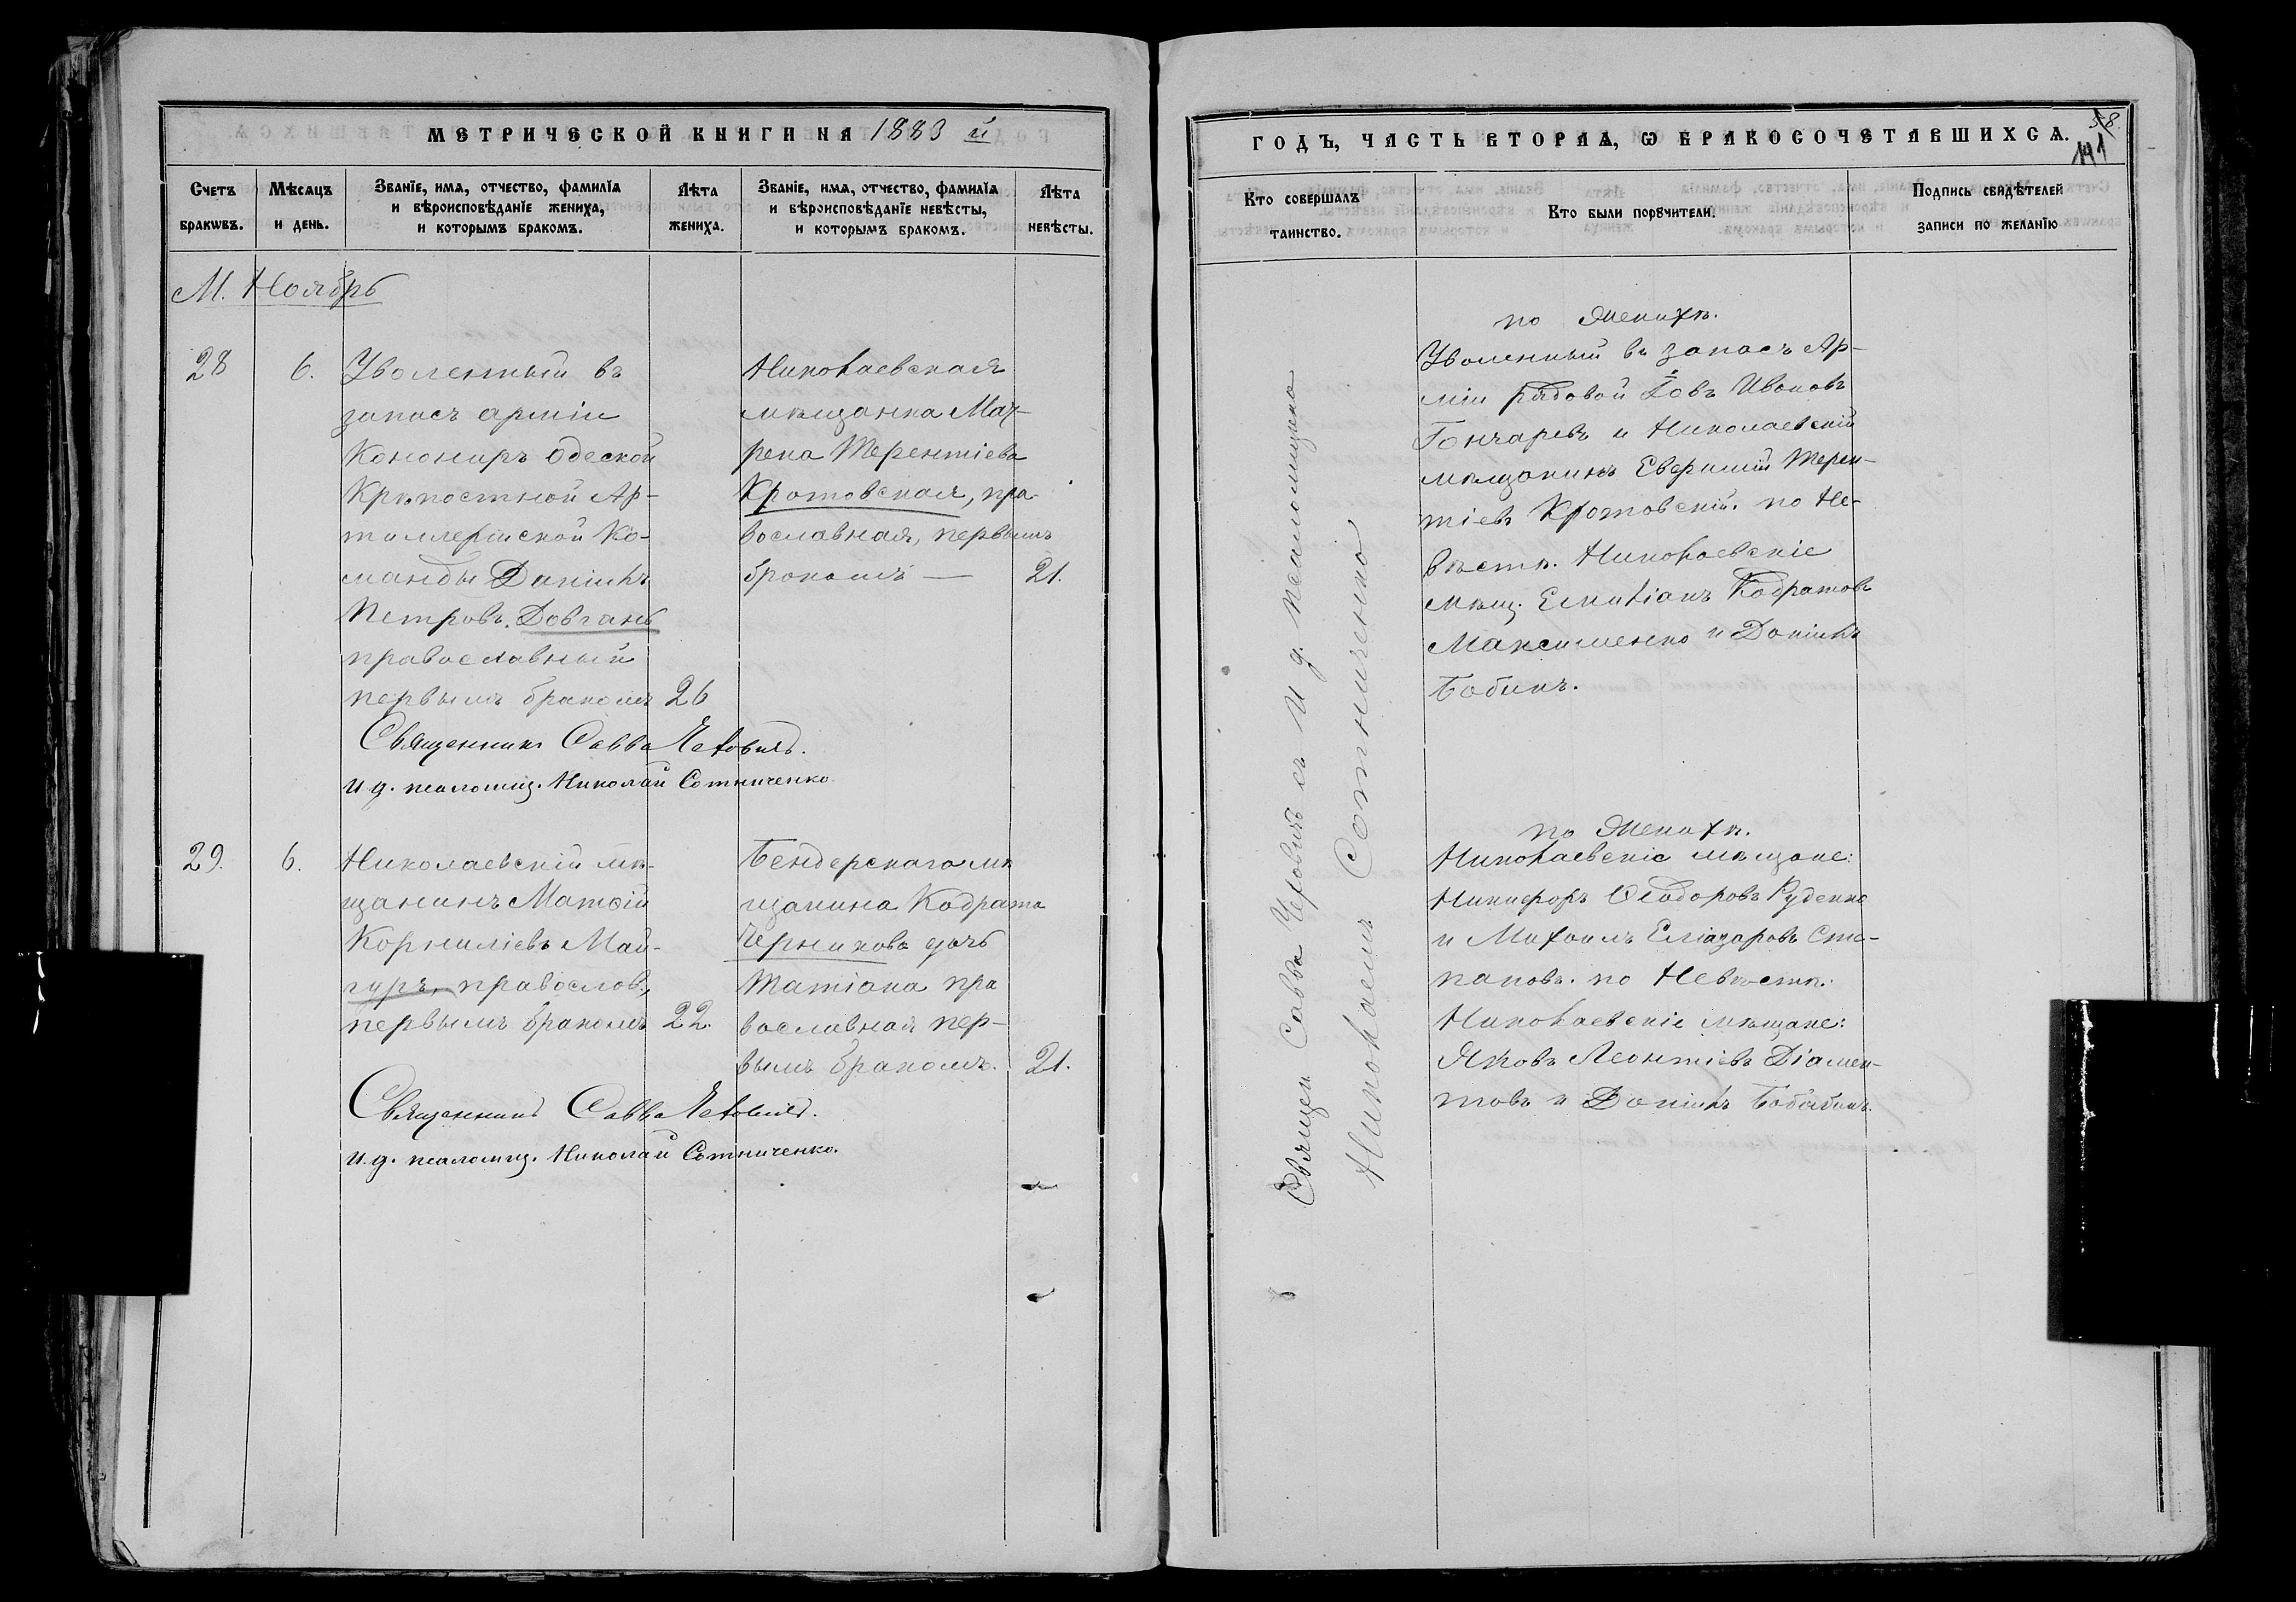 МЕТРИЧЕСКОЙ КНИГИ НА 1883 й
Счетъ браковъ.
Мѣсяцъ и день.
Званіе, имя, отчество, фамилія
и вѣроисповѣданіе жениха,
и которымъ бракомъ.
Лѣта жениха.
Званіе, имя, отчество, фамилія
и вѣроисповѣданіе невѣсты,
и которымъ бракомъ.
Лѣта невѣсты.
М. Ноябрь
28
6.
Уволенный въ
запасъ арміи
Канониръ Одеской
Крѣпостной Ар-
тиллерійской Ко-
манды Даніилъ
Петровъ. Довгань
православный
первымъ бракомъ 26
Николаевская
мѣщанка Мат-
рена Терентіева
Кротовская, пра-
вославная, первымъ
бракомъ — 21.
Священникъ Савва
и д. псаломщ. Николай Сотниченко.
29.
6.
Николаевскій мѣ-
щанинъ Матѳій
Корниліевъ Май-
гуръ, правослов.,
первымъ бракомъ 22.
Бендерскаго мѣ
щанина Кодрата
Черникова дочь
Татіана пра
вославная пер-
вымъ бракомъ. 21.
Священникъ Савва
и. д. псаломщ. Николай Сотниченко.
ГОДЪ, ЧАСТЬ ВТОРАЯ, Ѡ БРАКОСОЧЕТАВШИХСЯ.
58.
141
Кто совершалъ
таинство.
Кто были порꙋчители.
Подпись свидѣтелей
записи по желанію
Священ Савва с И д. псаломщика
Николаемъ Сотниченко
по Женихѣ.
Уволенный въ запасъ Ар-
міи рядовой Іовъ Ивановъ
Гончаревъ и Николаевскій
мѣщанинъ Евфимій Терен-
тіевъ Кротовскій. по Не-
вѣстѣ. Николаевскіе
мѣщ. Емиліанъ Кодратовъ
Максименко и Даніилъ
по Женихѣ.
Николаевскіе мѣщане:
Никифоръ Ѳеодоровъ Руденко
и Михаилъ Еліазаровъ Сте-
пановъ. по Невѣстѣ.
Николаевскіе мѣщане:
Яковъ Леонтіевъ Діамен-
товъ и Даніилъ